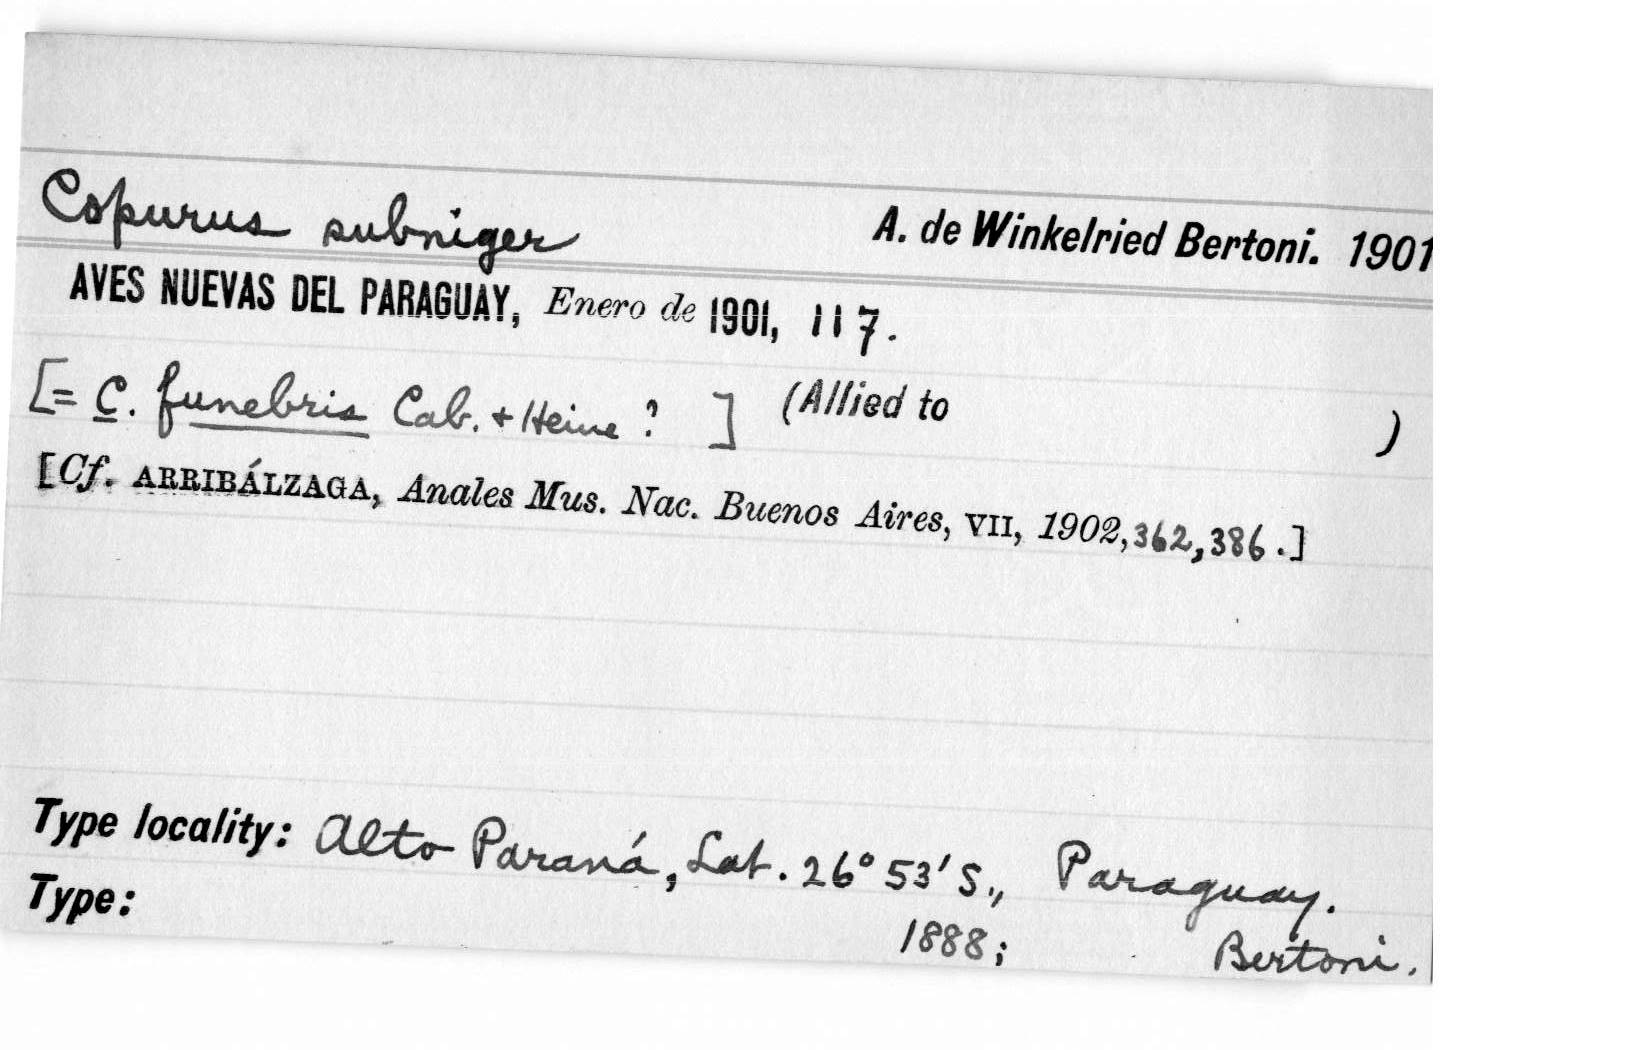 Copurus subniger A. de Winkelried Bertoni. 1901
AVES NUEVAS DEL PARAGUAY, Enero de 1901, 117.
[= C. funebris Cab. + Heine ? ] (Allied to )
[Cf. ARRIBÁLZAGA, Anales Mus. Nac. Buenos Aires, VII, 1902, 362, 386.]
Type locality: Alto Paraná, Lat. 26° 53' S., Paraguay.
Type: 1888; Bertoni.